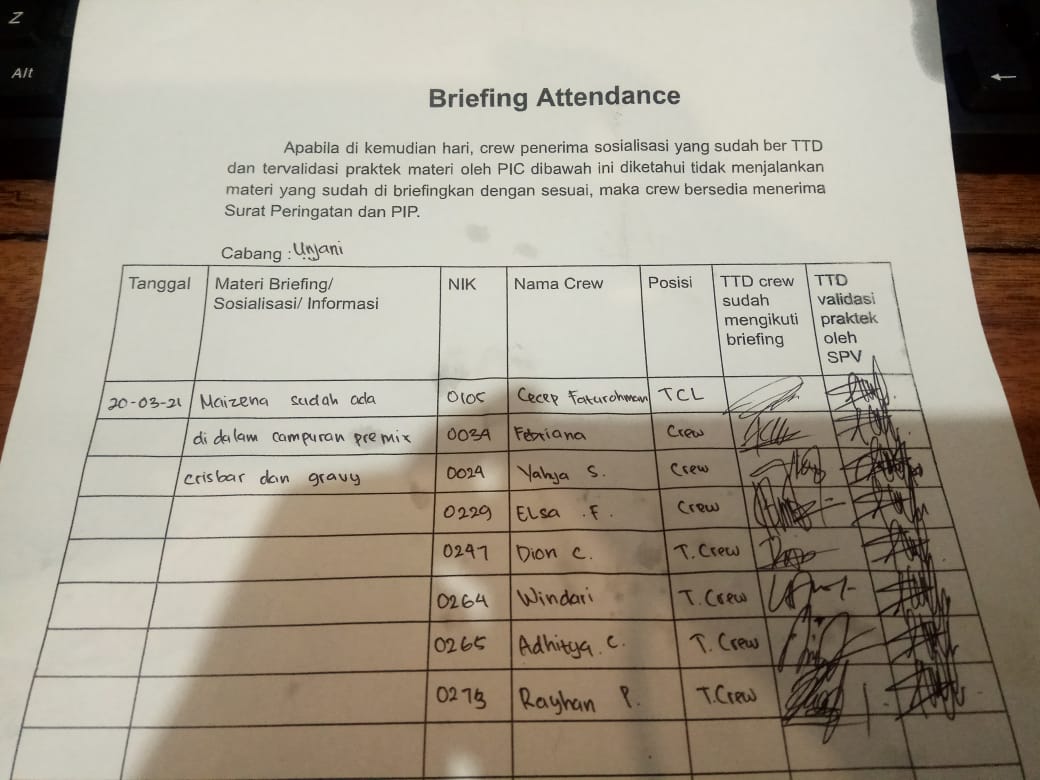 Z
Alt
←
Briefing Attendance
Apabila di kemudian hari, crew penerima sosialisasi yang sudah ber TTD
dan tervalidasi praktek materi oleh PIC dibawah ini diketahui tidak menjalankan
materi yang sudah di briefingkan dengan sesuai, maka crew bersedia menerima
Surat Peringatan dan PIP.
Cabang : Unjani
Tanggal Materi Briefing/ Sosialisasi/ Informasi NIK Nama Crew Posisi TTD crew sudah mengikuti briefing TTD validasi praktek oleh SPV
20-03-21 Maizena sudah ada 0105 Cecep Faturohman TCL
di dalam campuran premix 0034 Febriana Crew
crisbar dan gravy 0024 Yahya S. Crew
0229 Elsa .F. Crew
0247 Dion C. T. Crew
0264 Windari T. Crew
0265 Adhitya. C. T. Crew
0273 Rayhan P. T.Crew